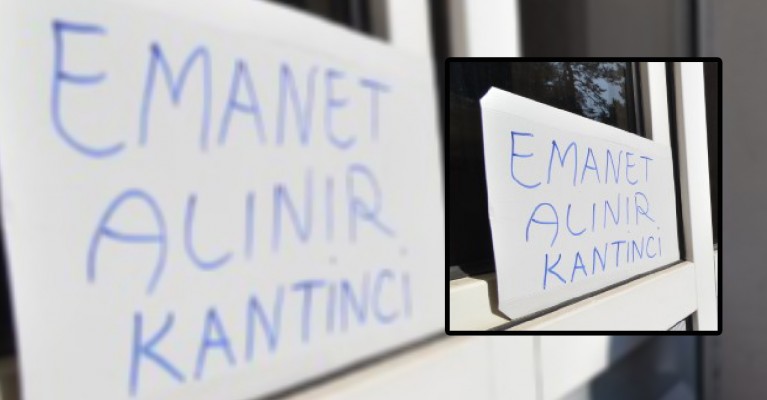 EMANET
ALINIR
KANTİNCİ
EMANET
ALINIR
KANTİNCİ